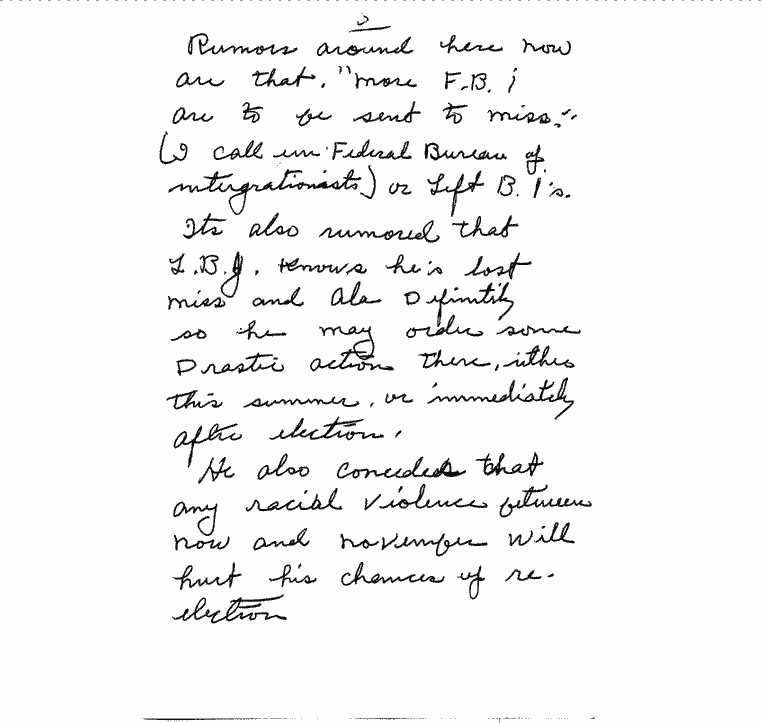 3
Rumors around here now
are that, "more F.B.i
are to be sent to miss."
(I call em Federal Bureau of
intergrationists) or Left B.I's.
Its also rumored that
L.B.J. knows he's lost
miss and Ala Definitily
so he may order some
Drastic action there, ither
this summer, or immediately
after election.
He also concedes that
any racial violence between
now and november will
hurt his chances of re-
election